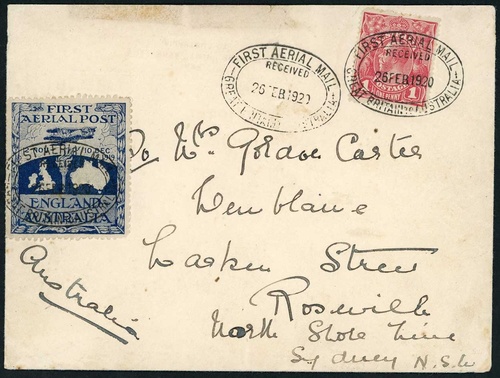 FIRST AERIAL MAIL
RECEIVED
26 FEB 1920
GREAT BRITAIN AUSTRALIA
FIRST AERIAL MAIL
RECEIVED
26 FEB 1920
GREAT BRITAIN TO AUSTRALIA
POSTAGE
1
FIRST
AERIAL POST
NOV 10 DEC
1919
ENGLAND
AUSTRALIA
FIRST AERIAL
To Mrs Gordon Carter
Wenblane
Street
Roseville
North Shore Line
Sydney N.S.W
Australia